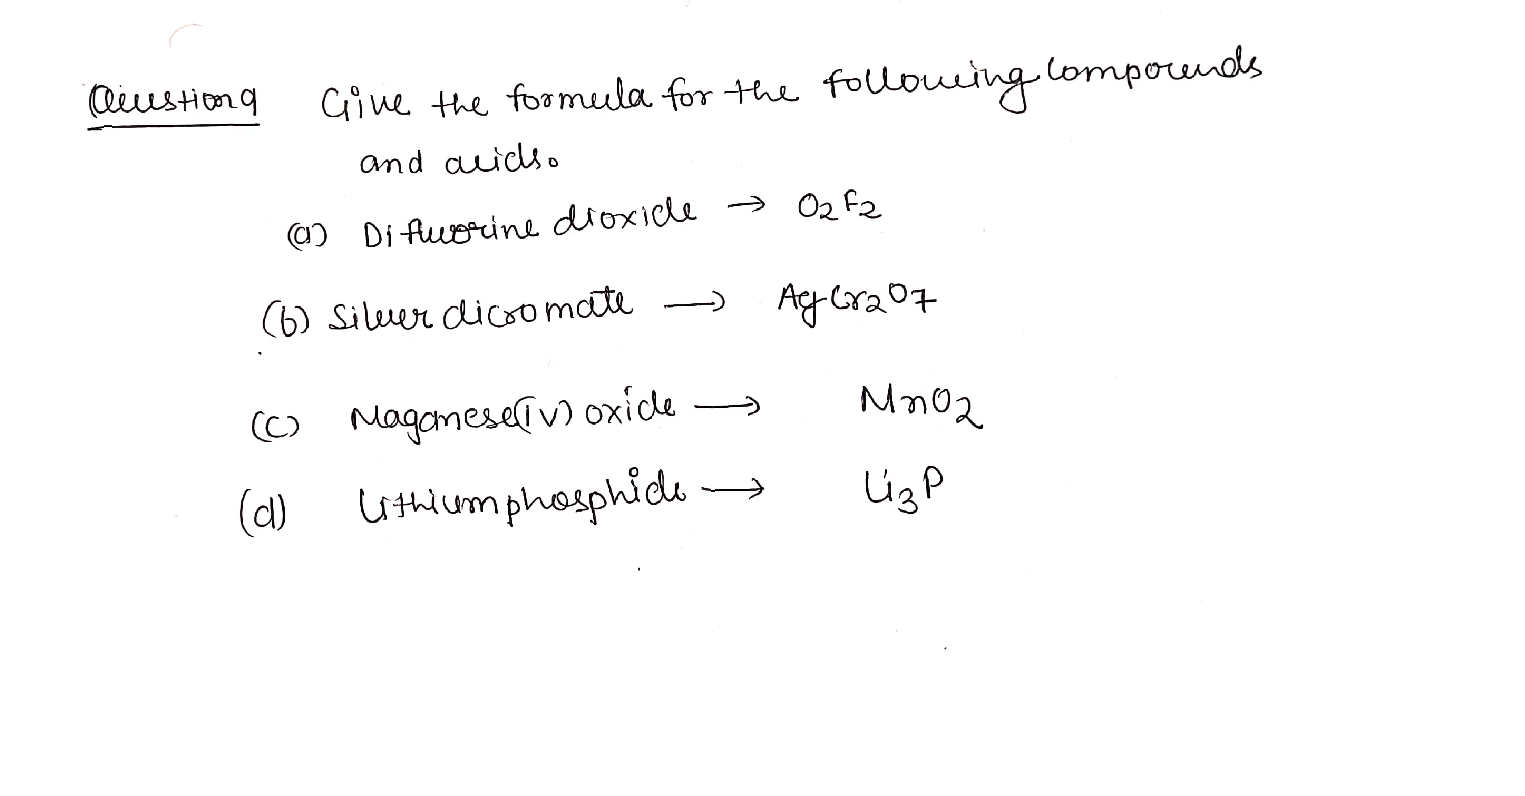 Question 9 Give the formula for the following compounds
and acids.
(a) Difluorine dioxide → O2F2
(b) Silver dicromate → AgCr2O7
(c) Maganese(IV) oxide → MnO2
(d) Lithium phosphide → Li3P